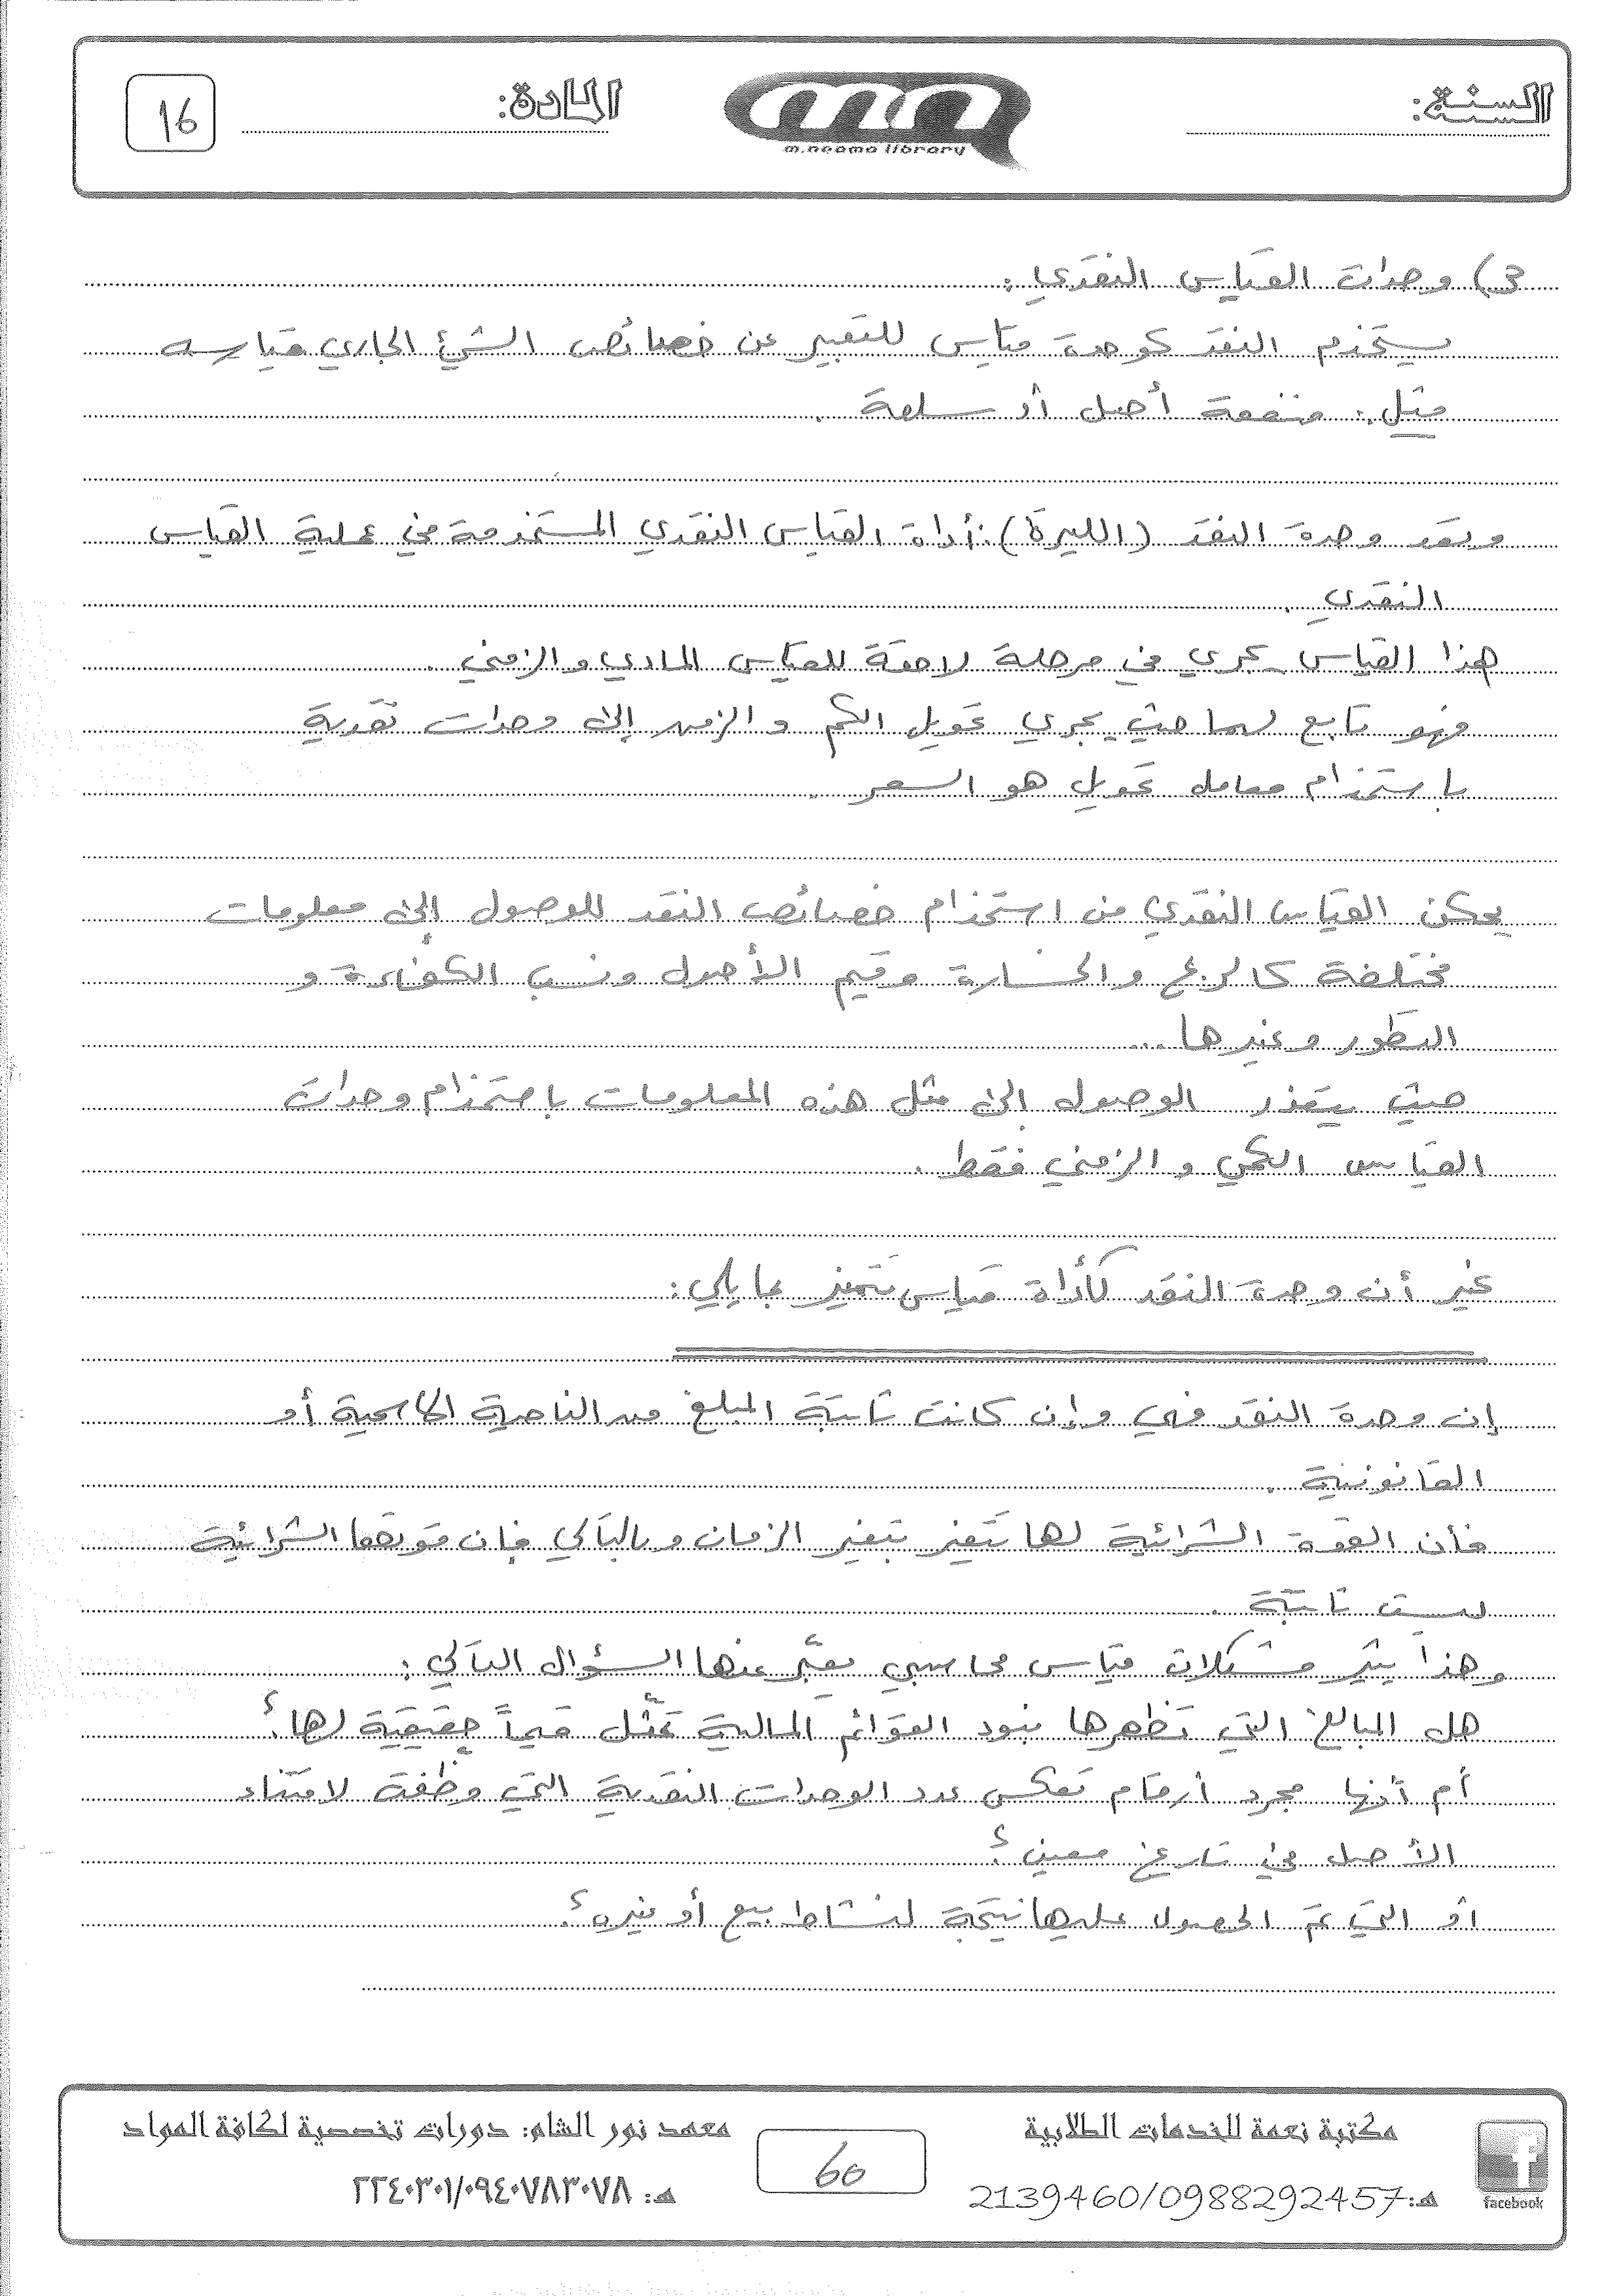 السنة:
m.neama library
المادة:
16
3) وحدات القياس النقدي:
يستخدم النقد كوحدة قياس للتعبير عن خصائص الشيء الجاري قياسه
مثل: منفعة أصل أو سلعة.
ويعد وحدة النقد (الليرة): أداة القياس النقدي المستخدمة في عملية القياس
النقدي.
هذا القياس يجري في مرحلة لاحقة للقياس المادي والزمني.
فهو تابع لهما حيث يجري تحويل الكم والزمن إلى وحدات نقدية
باستخدام معامل تحويل هو السعر.
يمكن القياس النقدي من استخدام خصائص النقد للوصول إلى معلومات
مختلفة كالربح والخسارة وقيم الأصول ونسب الكفاءة و
التطور وغيرها...
حيث يتعذر الوصول إلى مثل هذه المعلومات باستخدام وحدات
القياس الكمي والزمني فقط.
غير أن وحدة النقد كأداة قياس تتميز بما يلي:
إن وحدة النقد فهي وإن كانت ثابتة المبلغ من الناحية الاسمية أو
القانونية.
فأن القوة الشرائية لها تتغير بتغير الزمان وبالتالي فإن قوتها الشرائية
ليست ثابتة.
وهذا يثير مشكلات قياس محاسبي يعبّر عنها السؤال التالي:
هل المبالغ التي تظهرها بنود القوائم المالية تمثّل قيماً حقيقية لها؟
أم أنها مجرد أرقام تعكس عدد الوحدات النقدية التي وظفت لاقتناء
الأصل في تاريخ معين؟
أو التي تم الحصول عليها نتيجة لنشاط بيع أو غيره؟
مكتبة نعمة للخدمات الطلابية
هـ: 2139460/0988292457
facebook
60
معهد نور الشام: دورات تخصصية لكافة المواد
هـ: ٢٢٤٠٣٠١/٠٩٤٠٧٨٣٠٧٨